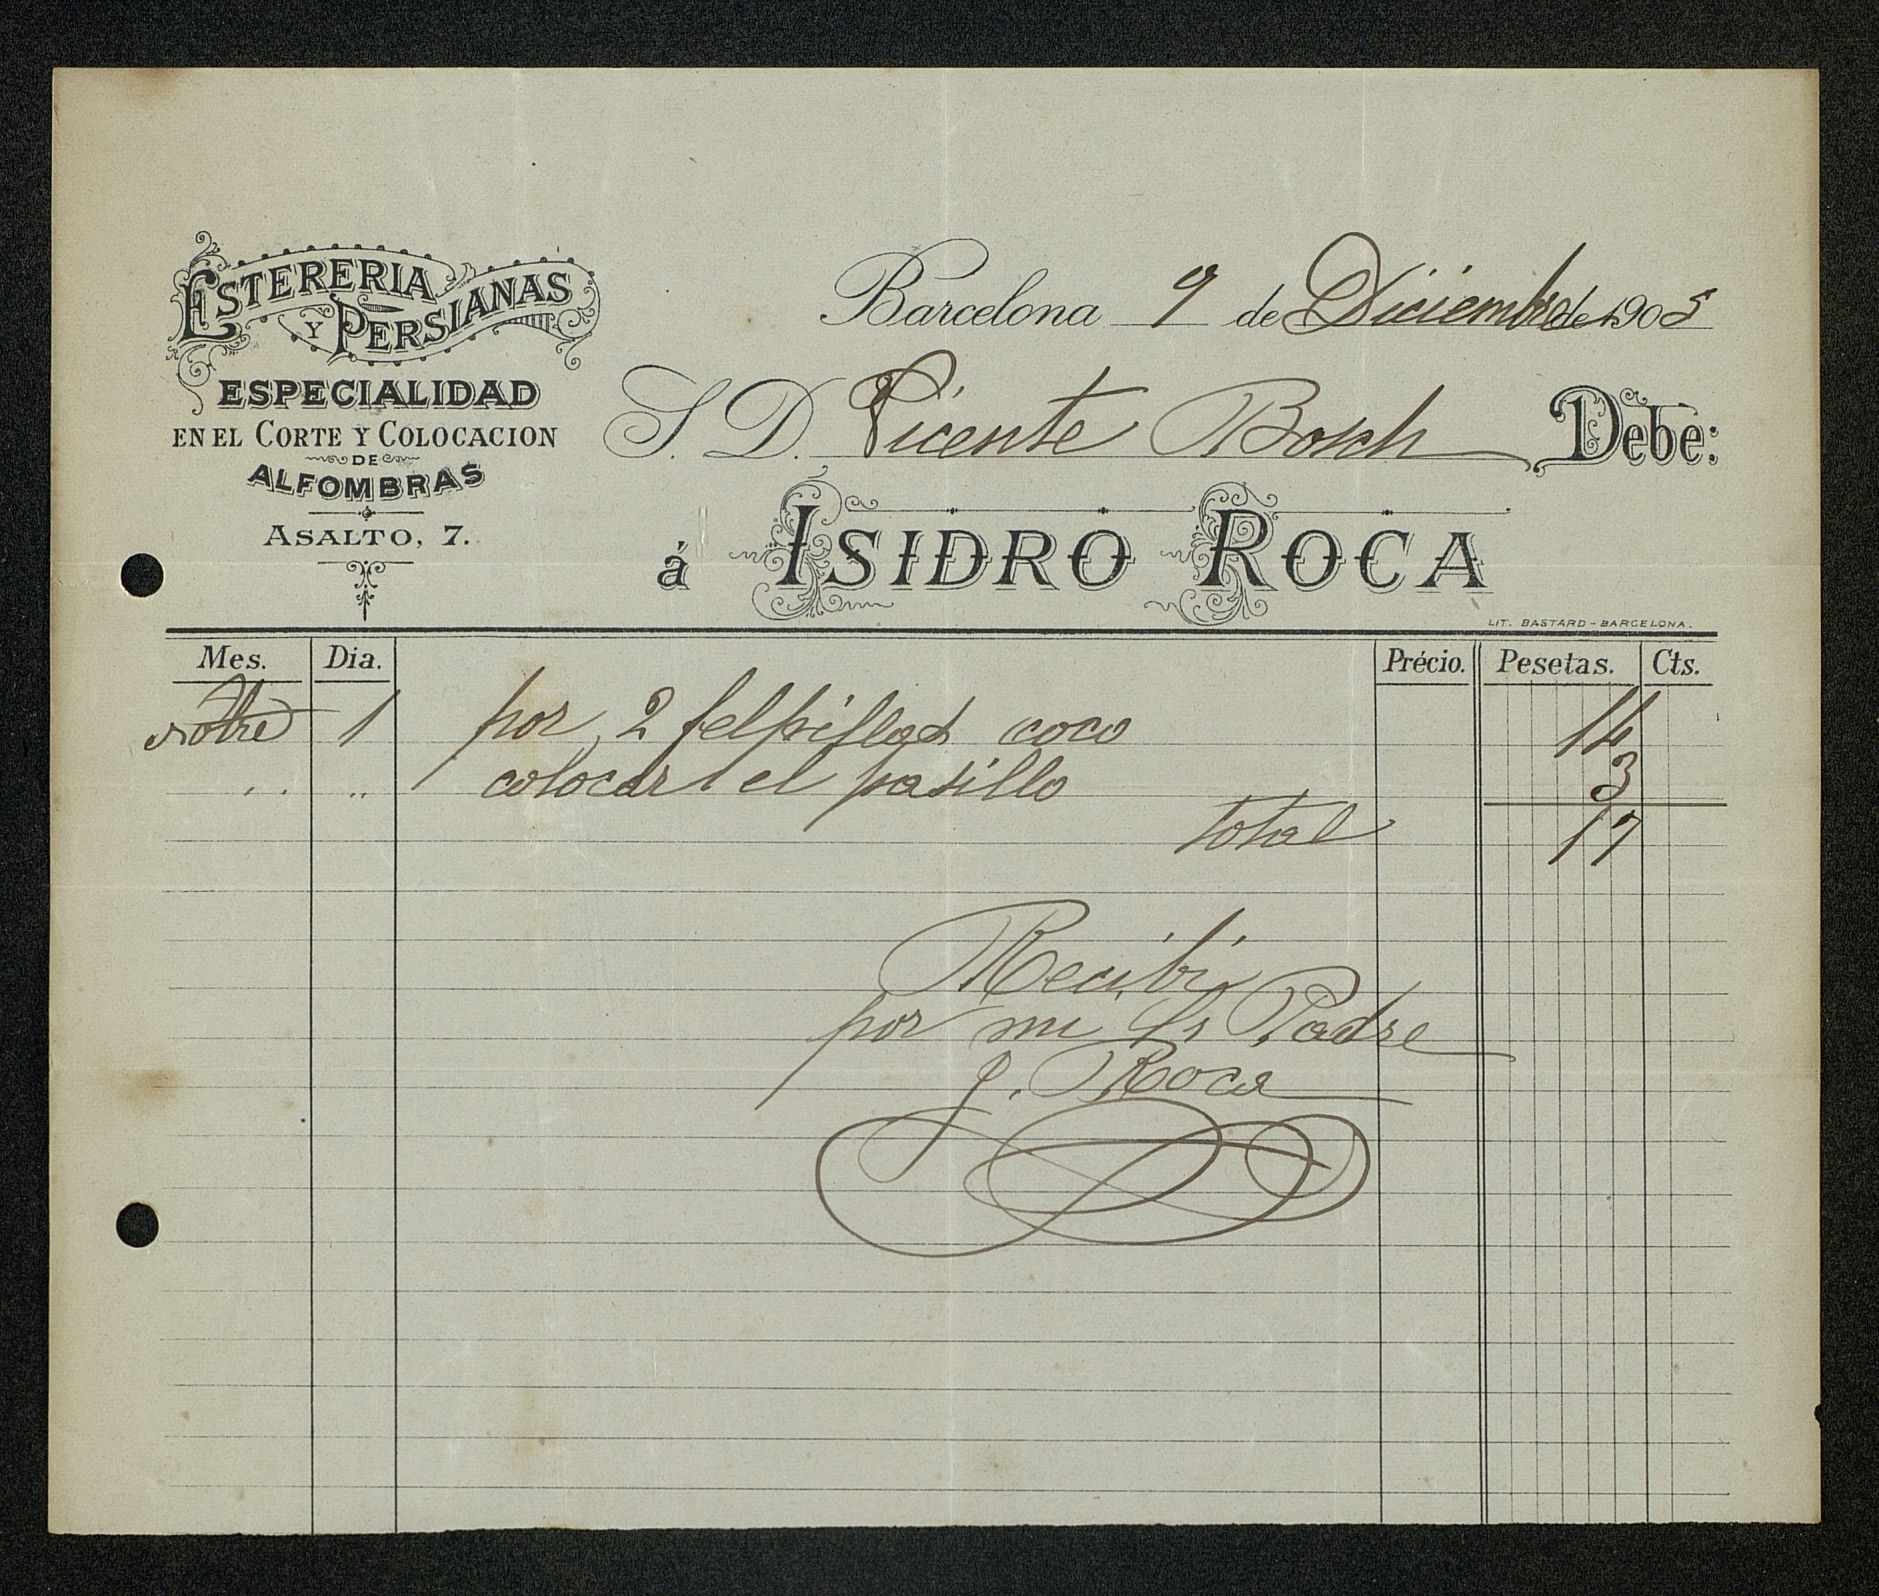 ESTERERIA
Y PERSIANAS
ESPECIALIDAD
EN EL CORTE Y COLOCACION
DE
ALFOMBRAS
ASALTO, 7.
Barcelona 9 de Diciembre de 1905
S. D. Vicente Bosch Debe:
á ISIDRO ROCA
LIT. BASTARD - BARCELONA.
Mes. Dia. Précio. Pesetas. Cts.
1 por 2 felpillas coco 14
" " colocar el pasillo 3
total 17
Recibí
por mi Sr Padre
J. Roca